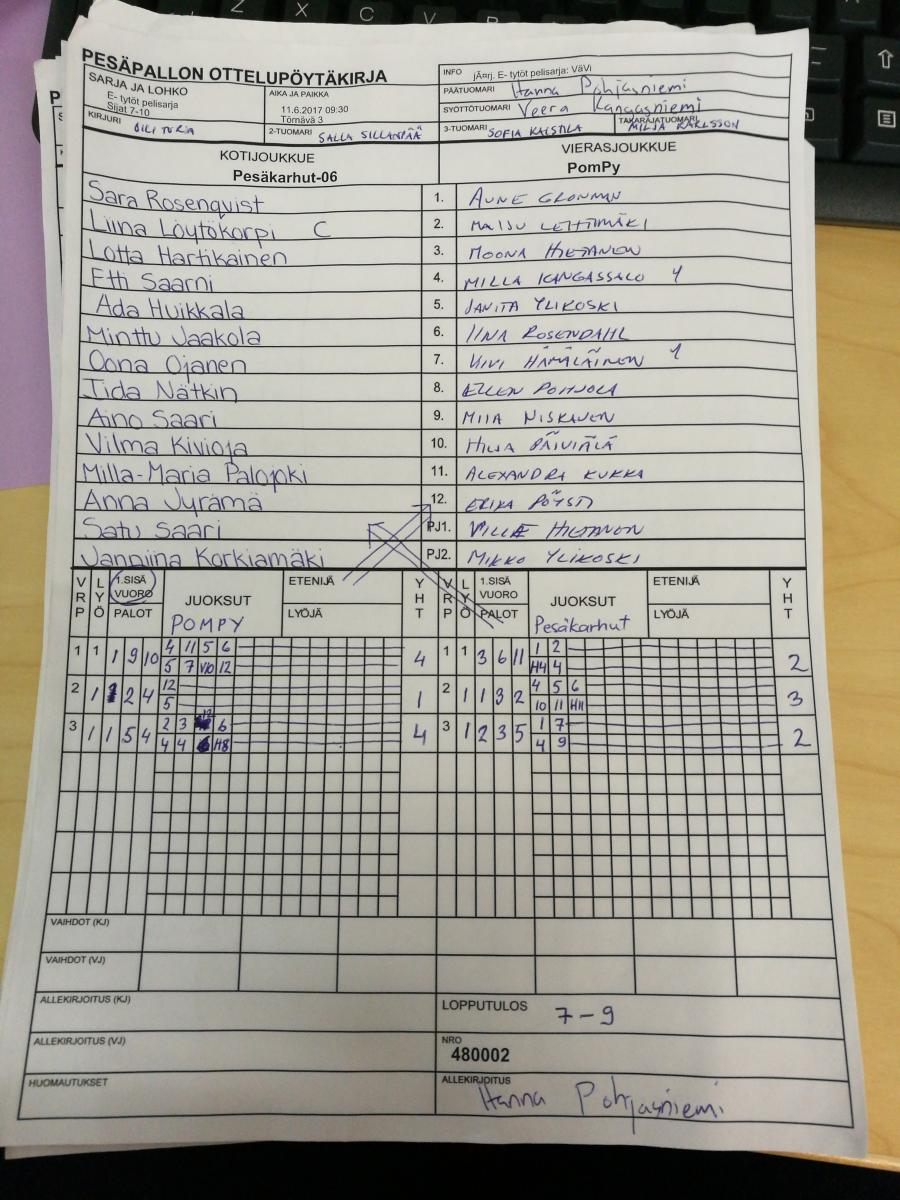 PESÄPALLON OTTELUPÖYTÄKIRJA
SARJA JA LOHKO
E- tytöt pelisarja
Sijat 7-10
AIKA JA PAIKKA
11.6.2017 09:30
Törnävä 3
INFO järj. E- tytöt pelisarja: VäVi
PÄÄTUOMARI Hanna Pohjasniemi
SYÖTTÖTUOMARI Veera Kangasniemi
KIRJURI
2-TUOMARI SALLA SILLANPÄÄ
3-TUOMARI SOFIA KAISTILA
TAKARAJATUOMARI MILJA KARLSSON
KOTIJOUKKUE
Pesäkarhut-06
VIERASJOUKKUE
PomPy
Sara Rosenqvist 1. AUNE GRONMAN
Liina Löytökorpi C 2. MAIJU LEHTIMÄKI
Lotta Hartikainen 3. MOONA HIETANEN
Etti Saarni 4. MILLA KANGASSALO
Ada Huikkala 5. JANITA YLIKOSKI
Minttu Jaakola 6. IINA ROSENDAHL
Oona Ojanen 7. VIVI HÄMÄLÄINEN
Iida Nätkin 8. ELLEN POHJOLA
Aino Saari 9. MIIA NISKANEN
Vilma Kivioja 10. HILJA PÄIVIÄLÄ
Milla-Maria Palojoki 11. ALEXANDRA KUKKA
Anna Jyrämä 12. ERIKA PÖYSTI
Satu Saari PJ1. VILLE HIETANEN
Janniina Korkiamäki PJ2. MIKKO YLIKOSKI
VRP LYÖ 1.SISÄ VUORO PALOT JUOKSUT POMPY ETENIJÄ LYÖJÄ YHT
VRP LYÖ 1.SISÄ VUORO PALOT JUOKSUT Pesäkarhut ETENIJÄ LYÖJÄ YHT
1 1 1 9 10 4 11 5 6 4 1 1 3 6 11 1 2 2
5 7 V10 12 H4 4
2 1 2 4 12 1 2 1 1 3 2 4 5 6 3
5 10 11 H11
3 1 1 5 4 2 3 12 6 4 3 1 2 3 5 1 7 2
4 4 H8 4 9
VAIHDOT (KJ)
VAIHDOT (VJ)
ALLEKIRJOITUS (KJ)
LOPPUTULOS 7-9
ALLEKIRJOITUS (VJ)
NRO
480002
HUOMAUTUKSET
ALLEKIRJOITUS
Hanna Pohjasniemi